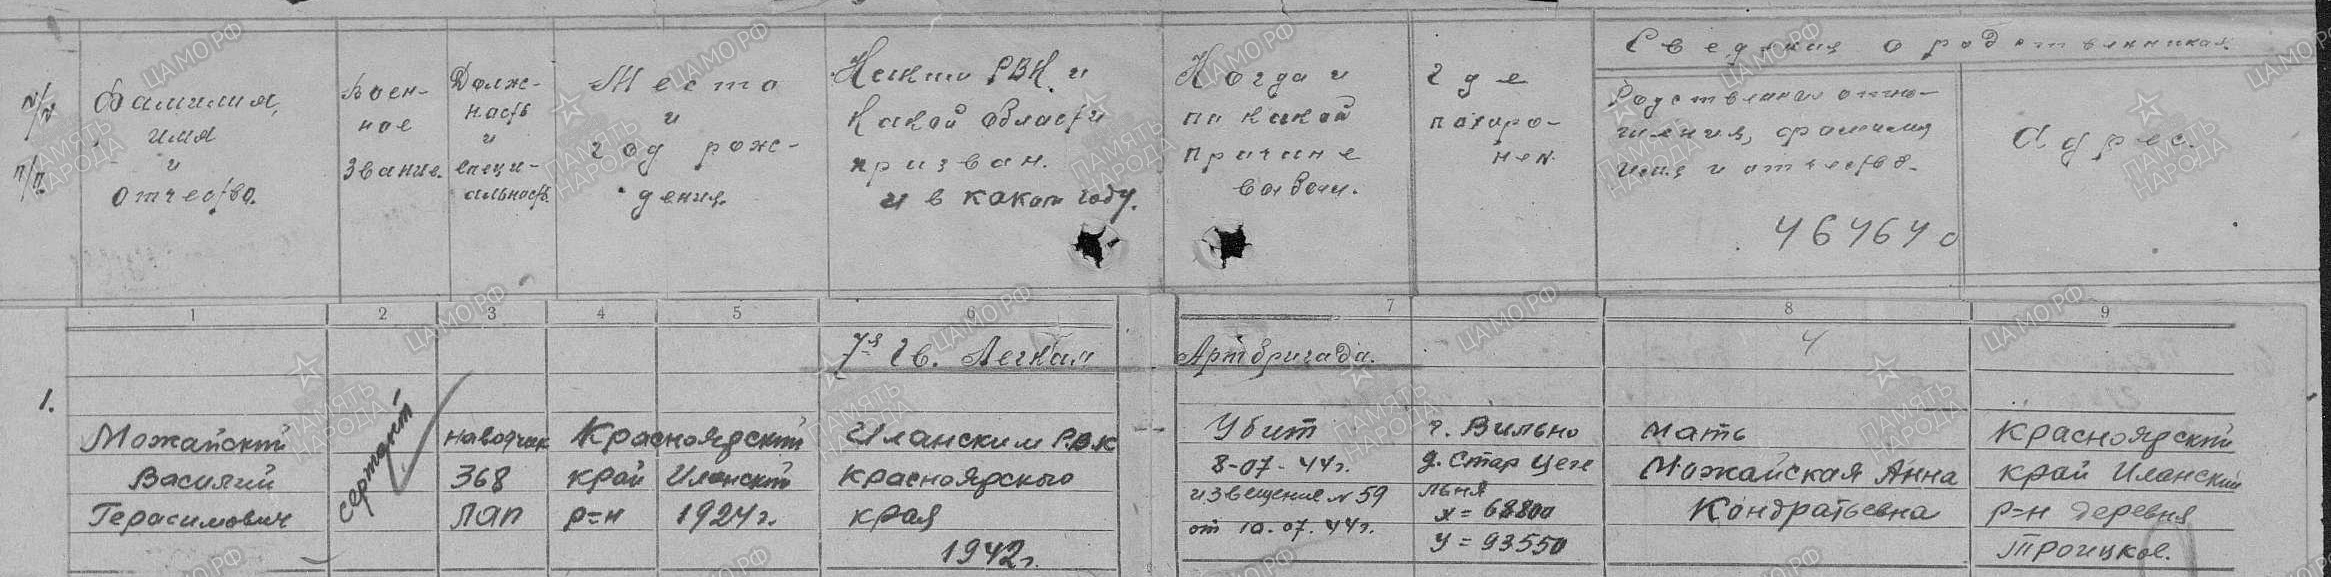 N/N п/п.
Фамилия, имя и отчество.
Воен-ное звание.
Долж-ность и специ-альность.
Место и год рож-дения.
Каким РВК и какой области призван. и в каком году.
Когда и по какой причине
где похоро-нен.
Сведения о родственниках.
Родственная отно-шения, фамилия имя и отчество.
464640
Адрес.
1 2 3 4 5 6 7 8 9
7я Гв. Легкая Артбригада.
4
1.
Можайский
Василий
Герасимович
сержант
наводчик
368
ЛАП
Красноярский
край Иланский
р=н 1924г.
Иланским РВК
Красноярского
края
1942г.
Убит
8-07-44г.
извещение N 59
от 10.07.44г.
г. Вильно
д. Стар Цеге
льня
х = 68800
у = 93550
мать
Можайская Анна
Кондратьевна
Красноярский
край Иланский
р=н деревня
Троицкое.
ЦАМО РФ
ПАМЯТЬ
НАРОДА